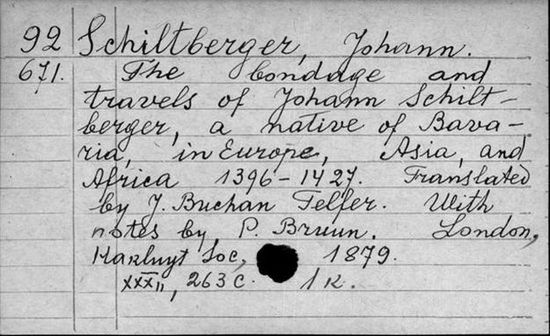 92 Schiltberger, Johann.
671. The bondage and
travels of Johann Schilt-
berger, a native of Bava-
ria, in Europe, Asia, and
Africa 1396-1427. Translated
by J. Buchan Telfer. With
notes by P. Bruun. London,
Hakluyt Soc, 1879.
XXXII, 263 c. 1 к.